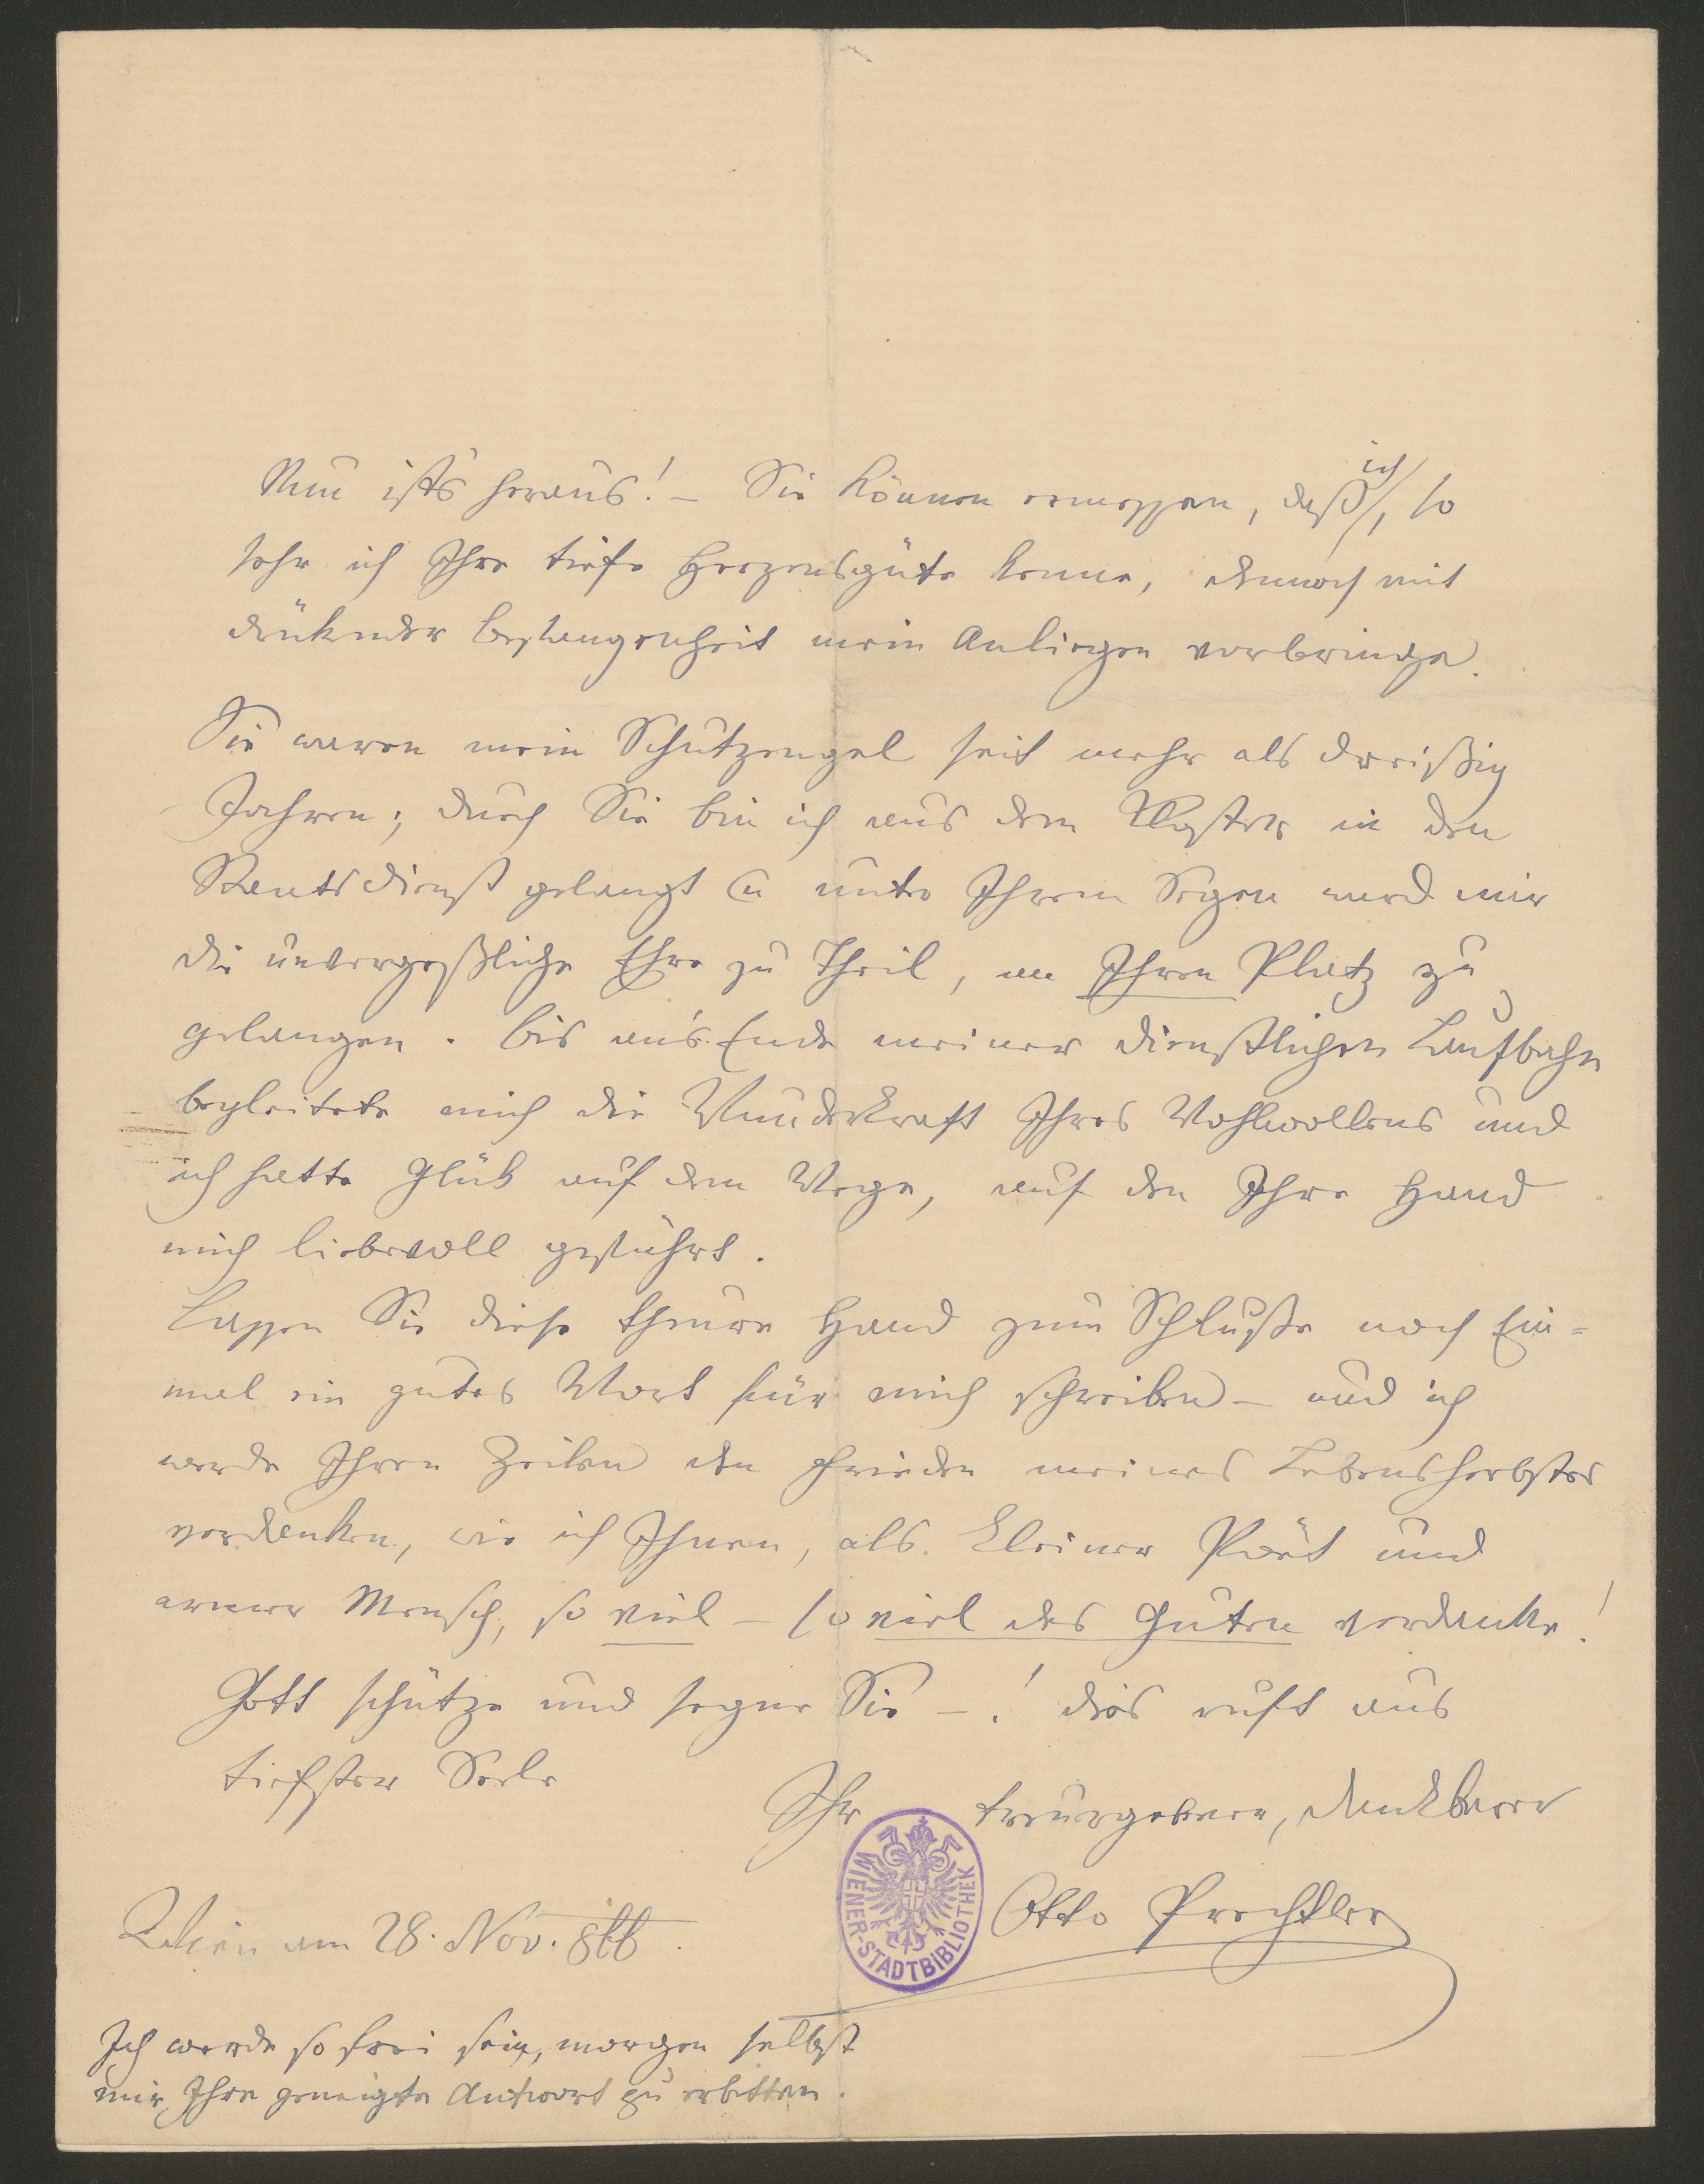 Nun ist's heraus! – Sie können ermessen, daß ich, so
sehr ich Ihre tiefe Herzensgüte kenne, dennoch mit
drükender Befangenheit mein Anliegen vorbringe.
Sie waren mein Schutzengel seit mehr als dreißig
Jahren; durch Sie bin ich aus dem Kloster in den
Staatsdienst gelangt u unter Ihrem Segen ward mir
die unvergeßliche Ehre zu Theil, an Ihren Platz zu
gelangen. Bis an's Ende meiner dienstlichen Laufbahn
begleitete mich die Wunderkraft Ihres Wohlwollens und
ich hatte Glük auf dem Wege, auf den Ihre Hand
mich liebevoll geführt.
Lassen Sie diese theure Hand zum Schluße noch Ein=
mal ein gutes Wort für mich schreiben – und ich
werde Ihren Zeilen den Frieden meines Lebensherbstes
verdanken, wie ich Ihnen, als kleiner Poët und
armer Mensch, so viel – so viel des Guten verdanke!
Gott schütze und segne Sie –! dies ruft aus
tiefster Seele
Ihr treuergebener, dankbarer
Otto Prechtler
Wien am 28. Nov. 866.
WIENER-STADTBIBLIOTHEK
Ich werde so frei sein, morgen selbst
mir Ihre geneigte Antwort zu erbitten.